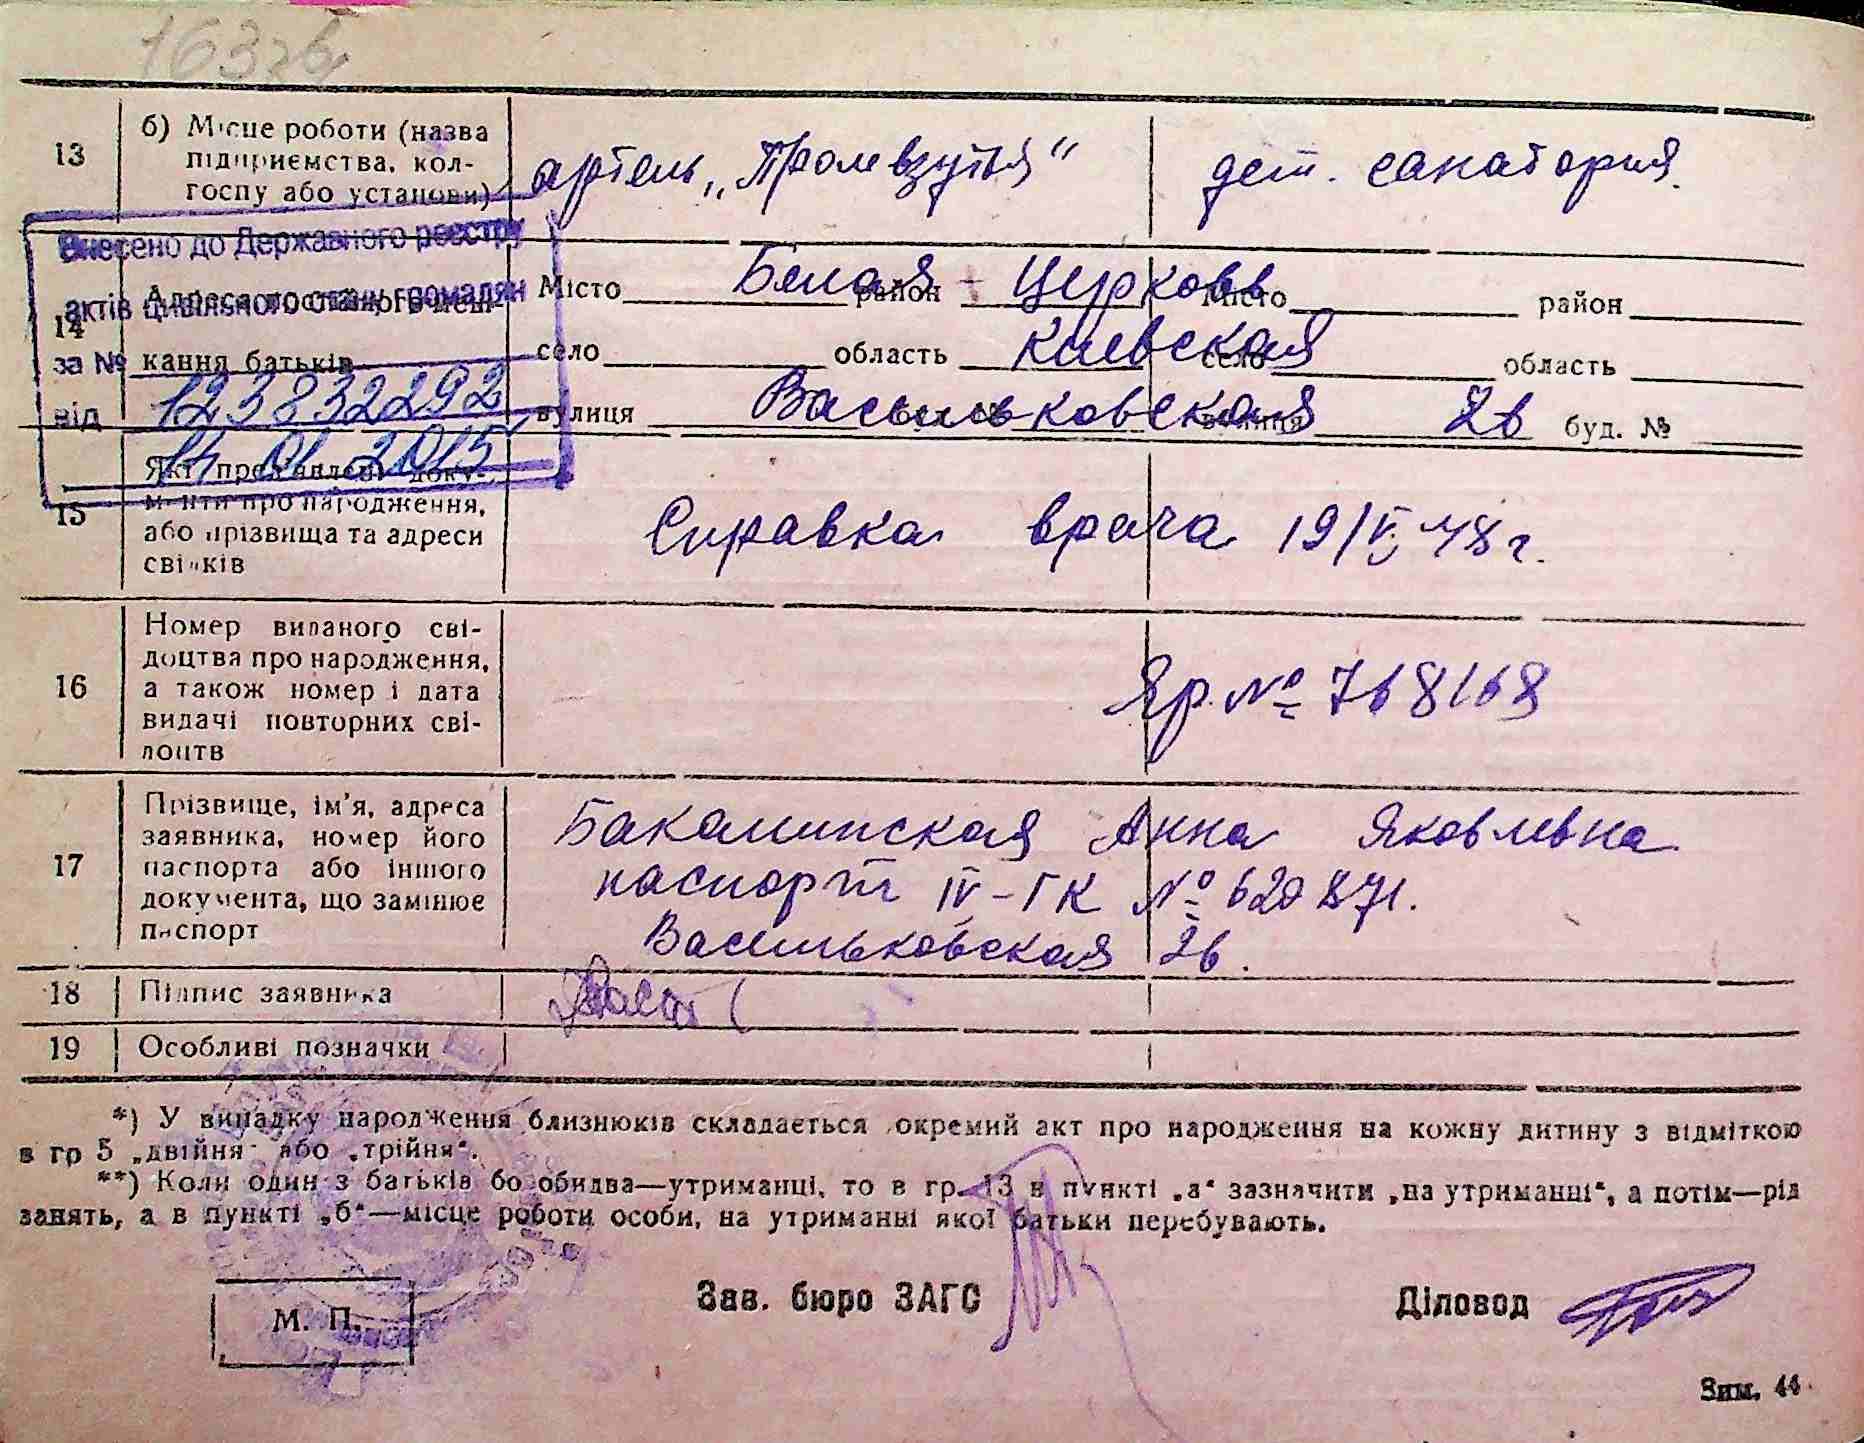 13
б) Місце роботи (назва
підприємства, кол-
госпу або установи)
артель „Промвзуття“
дет. санатория.
Внесено до Державного реєстру
актів цивільного стану громадян
за № 123832292
від 14 01 2015
14
Адреса постійного меш-
кання батьків
Місто Белая - район Церковь Місто район
село область Киевская село область
вулиця Васильковская вулиця 26 буд. №
15
Які пред'явлені доку-
менти про народження,
або прізвища та адреси
свідків
Справка врача 19/V 48 г.
16
Номер виданого сві-
доцтва про народження,
а також номер і дата
видачі повторних сві-
доцтв
Яр. № 768168
17
Прізвище, ім'я, адреса
заявника, номер його
паспорта або іншого
документа, що замінює
паспорт
Бакалинская Анна Яковлевна
паспорт IV-ГК № 620871.
Васильковская 26.
18
Підпис заявника
19
Особливі позначки
*) У випадку народження близнюків складається окремий акт про народження на кожну дитину з відміткою
в гр 5 „двійня“ або „трійня“.
**) Коли один з батьків бо обидва—утриманці, то в гр. 13 в пункті „а“ зазначити „на утриманні“, а потім—рід
занять, а в пункті „б“—місце роботи особи, на утриманні якої батьки перебувають.
М. П.
Зав. бюро ЗАГС
Діловод
Зим. 44